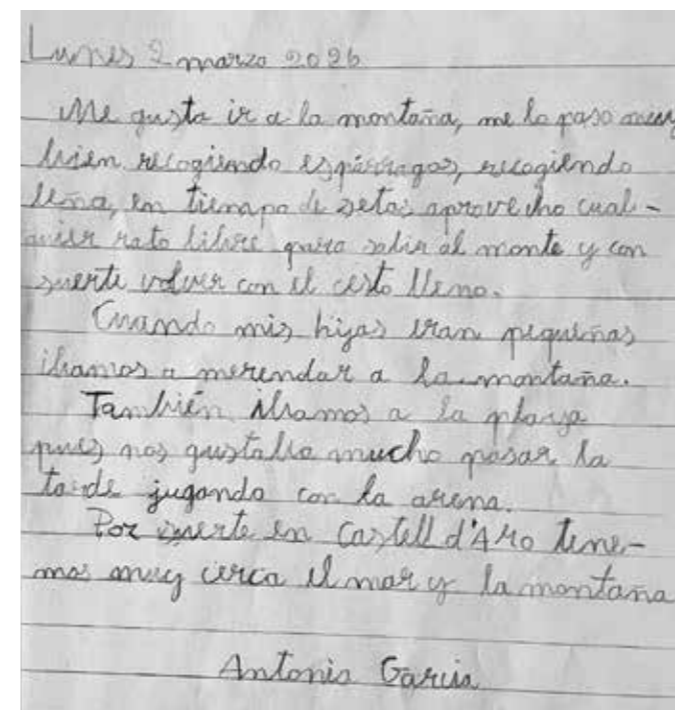 Lunes 2 marzo 2026
Me gusta ir a la montaña, me lo paso muy
bien recogiendo espárragos, recogiendo
leña, en tiempo de setas aprovecho cual-
quier rato libre para salir al monte y con
suerte volver con el cesto lleno.
Cuando mis hijas eran pequeñas
ibamos a merendar a la montaña.
También ibamos a la playa
pues nos gustaba mucho pasar la
tarde jugando con la arena.
Por suerte en Castell d'Aro tene-
mos muy cerca el mar y la montaña
Antonia Garcia